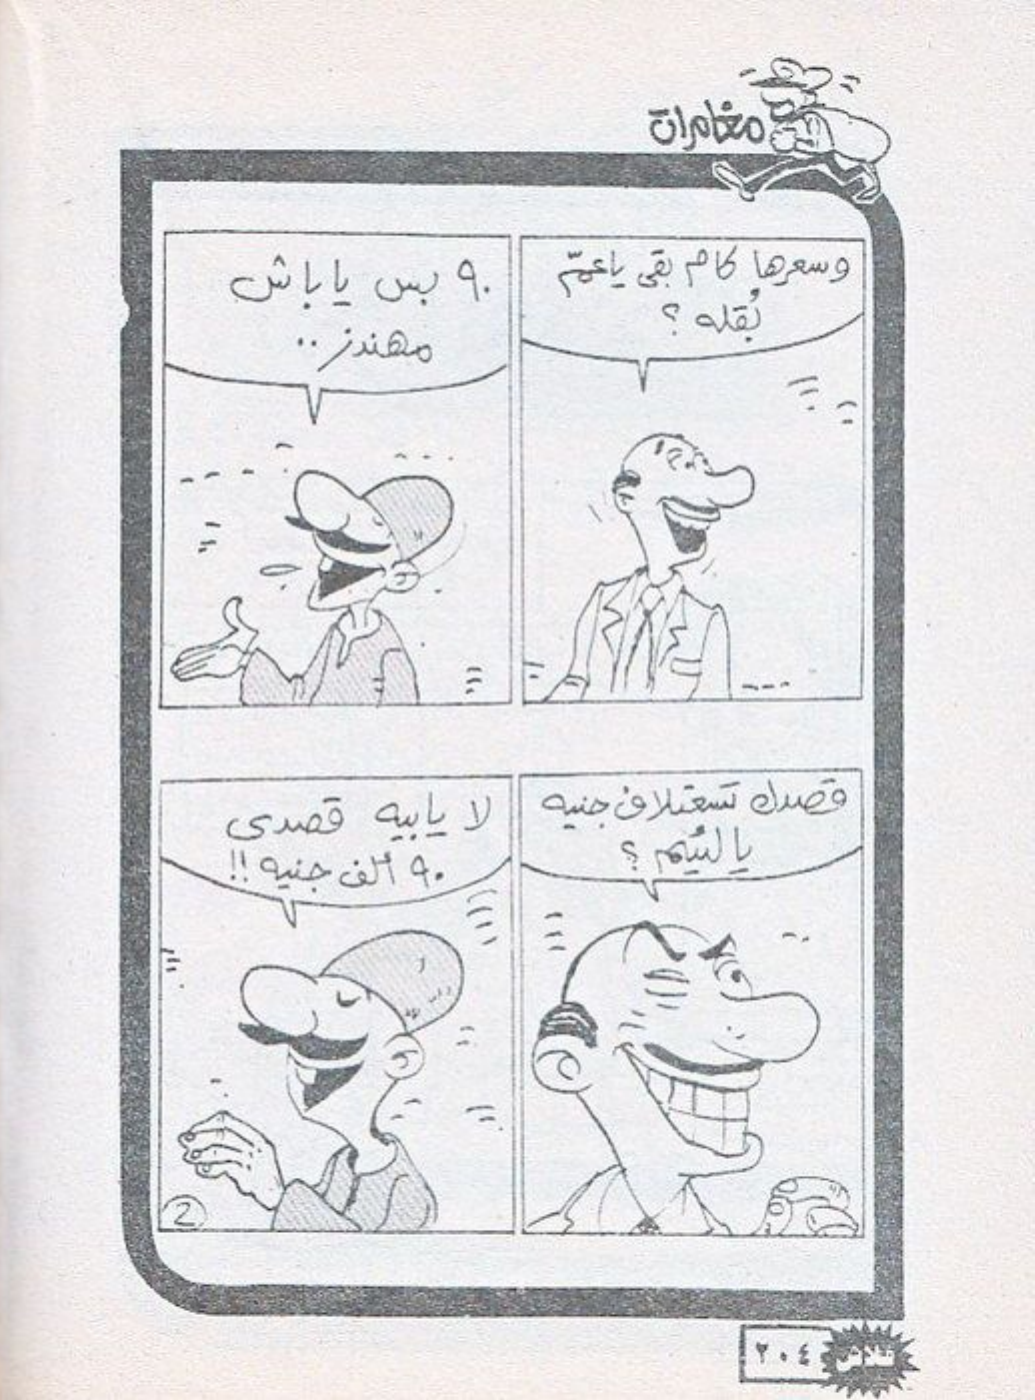 مغامرات
وسعرها كام بقى ياعمّ
بُقله ؟
٩٠ بس ياباش
مهندز ..
قصدك تسعتلاف جنيه
يا لئيم ؟
لا يابيه قصدى
٩٠ ألف جنيه !!
2
فلاش
٢٠٤